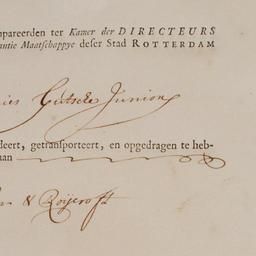 npareerden ter Kamer der DIRECTEURS
antie Maatschappye deser Stad ROTTERDAM
ies Gutseke Junior
deert, getransporteert, en opgedragen te heb-
aan
n & Roijcroft